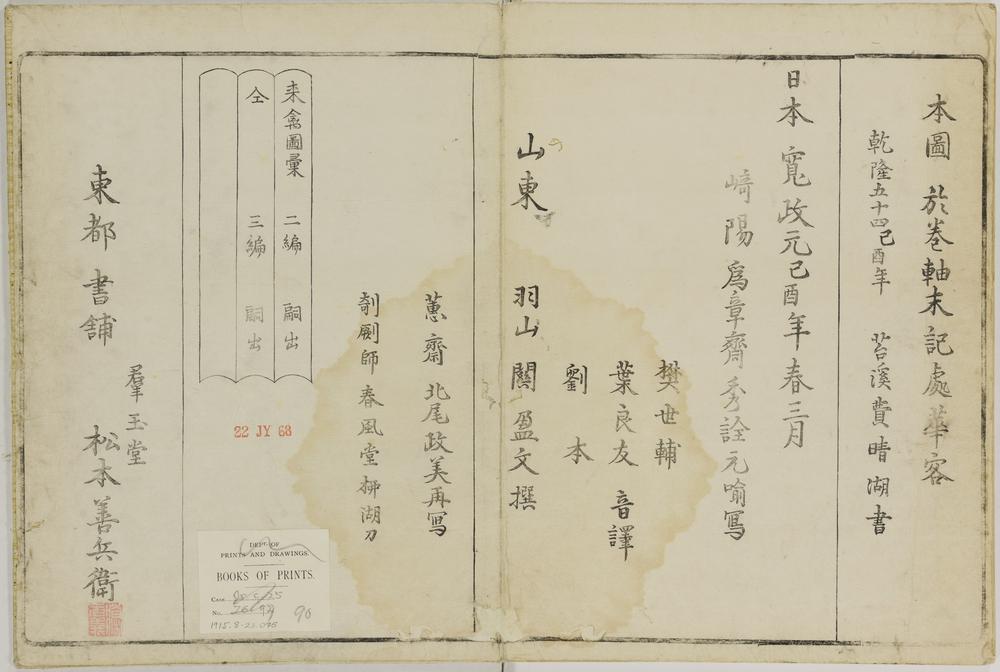 本圖 於巻軸末記處華客
乾隆五十四己酉年 苕溪費晴湖書
日本 寛政元己酉年春三月
崎陽 爲章齊秀詮元喻寫
樊世輔
葉良友 音譯
劉本
山東 羽山 關盈文撰
蕙齋 北尾政美再寫
剞劂師 春風堂栁湖刀
来禽圖彙 二編 嗣出
仝 三編 嗣出
東都書舖
羣玉堂
松本善兵衛
22 JY 68
DEPT OF
PRINTS AND DRAWINGS.
BOOKS OF PRINTS.
CASE
No.
90
1915.8-23.075